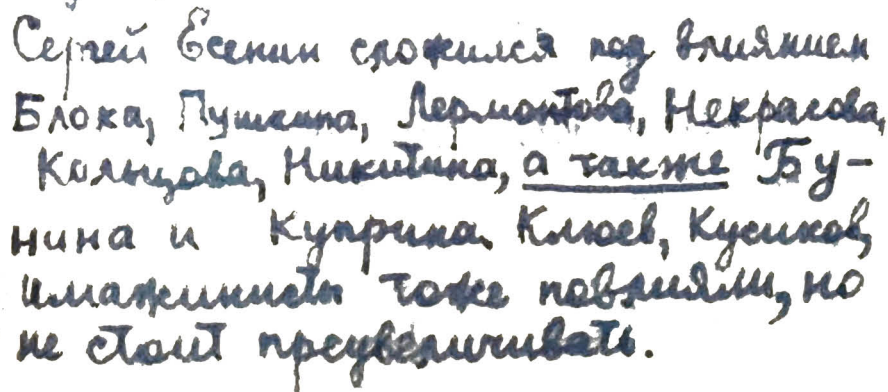 Сергей Есенин сложился под влиянием
Блока, Пушкина, Лермонтова, Некрасова,
Кольцова, Никитина, а также Бу-
нина и Куприна. Клюев, Кусиков,
имажинисты тоже повлияли, но
не стоит преувеличивать.